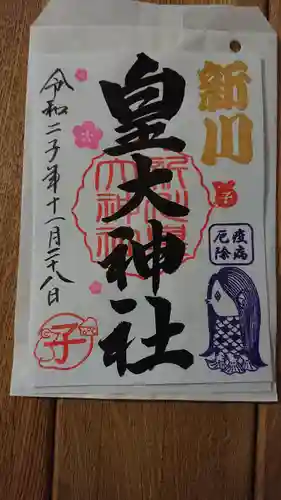 新川
皇大神社
令和二子年十一月二十八日
子
疫病
厄除
子